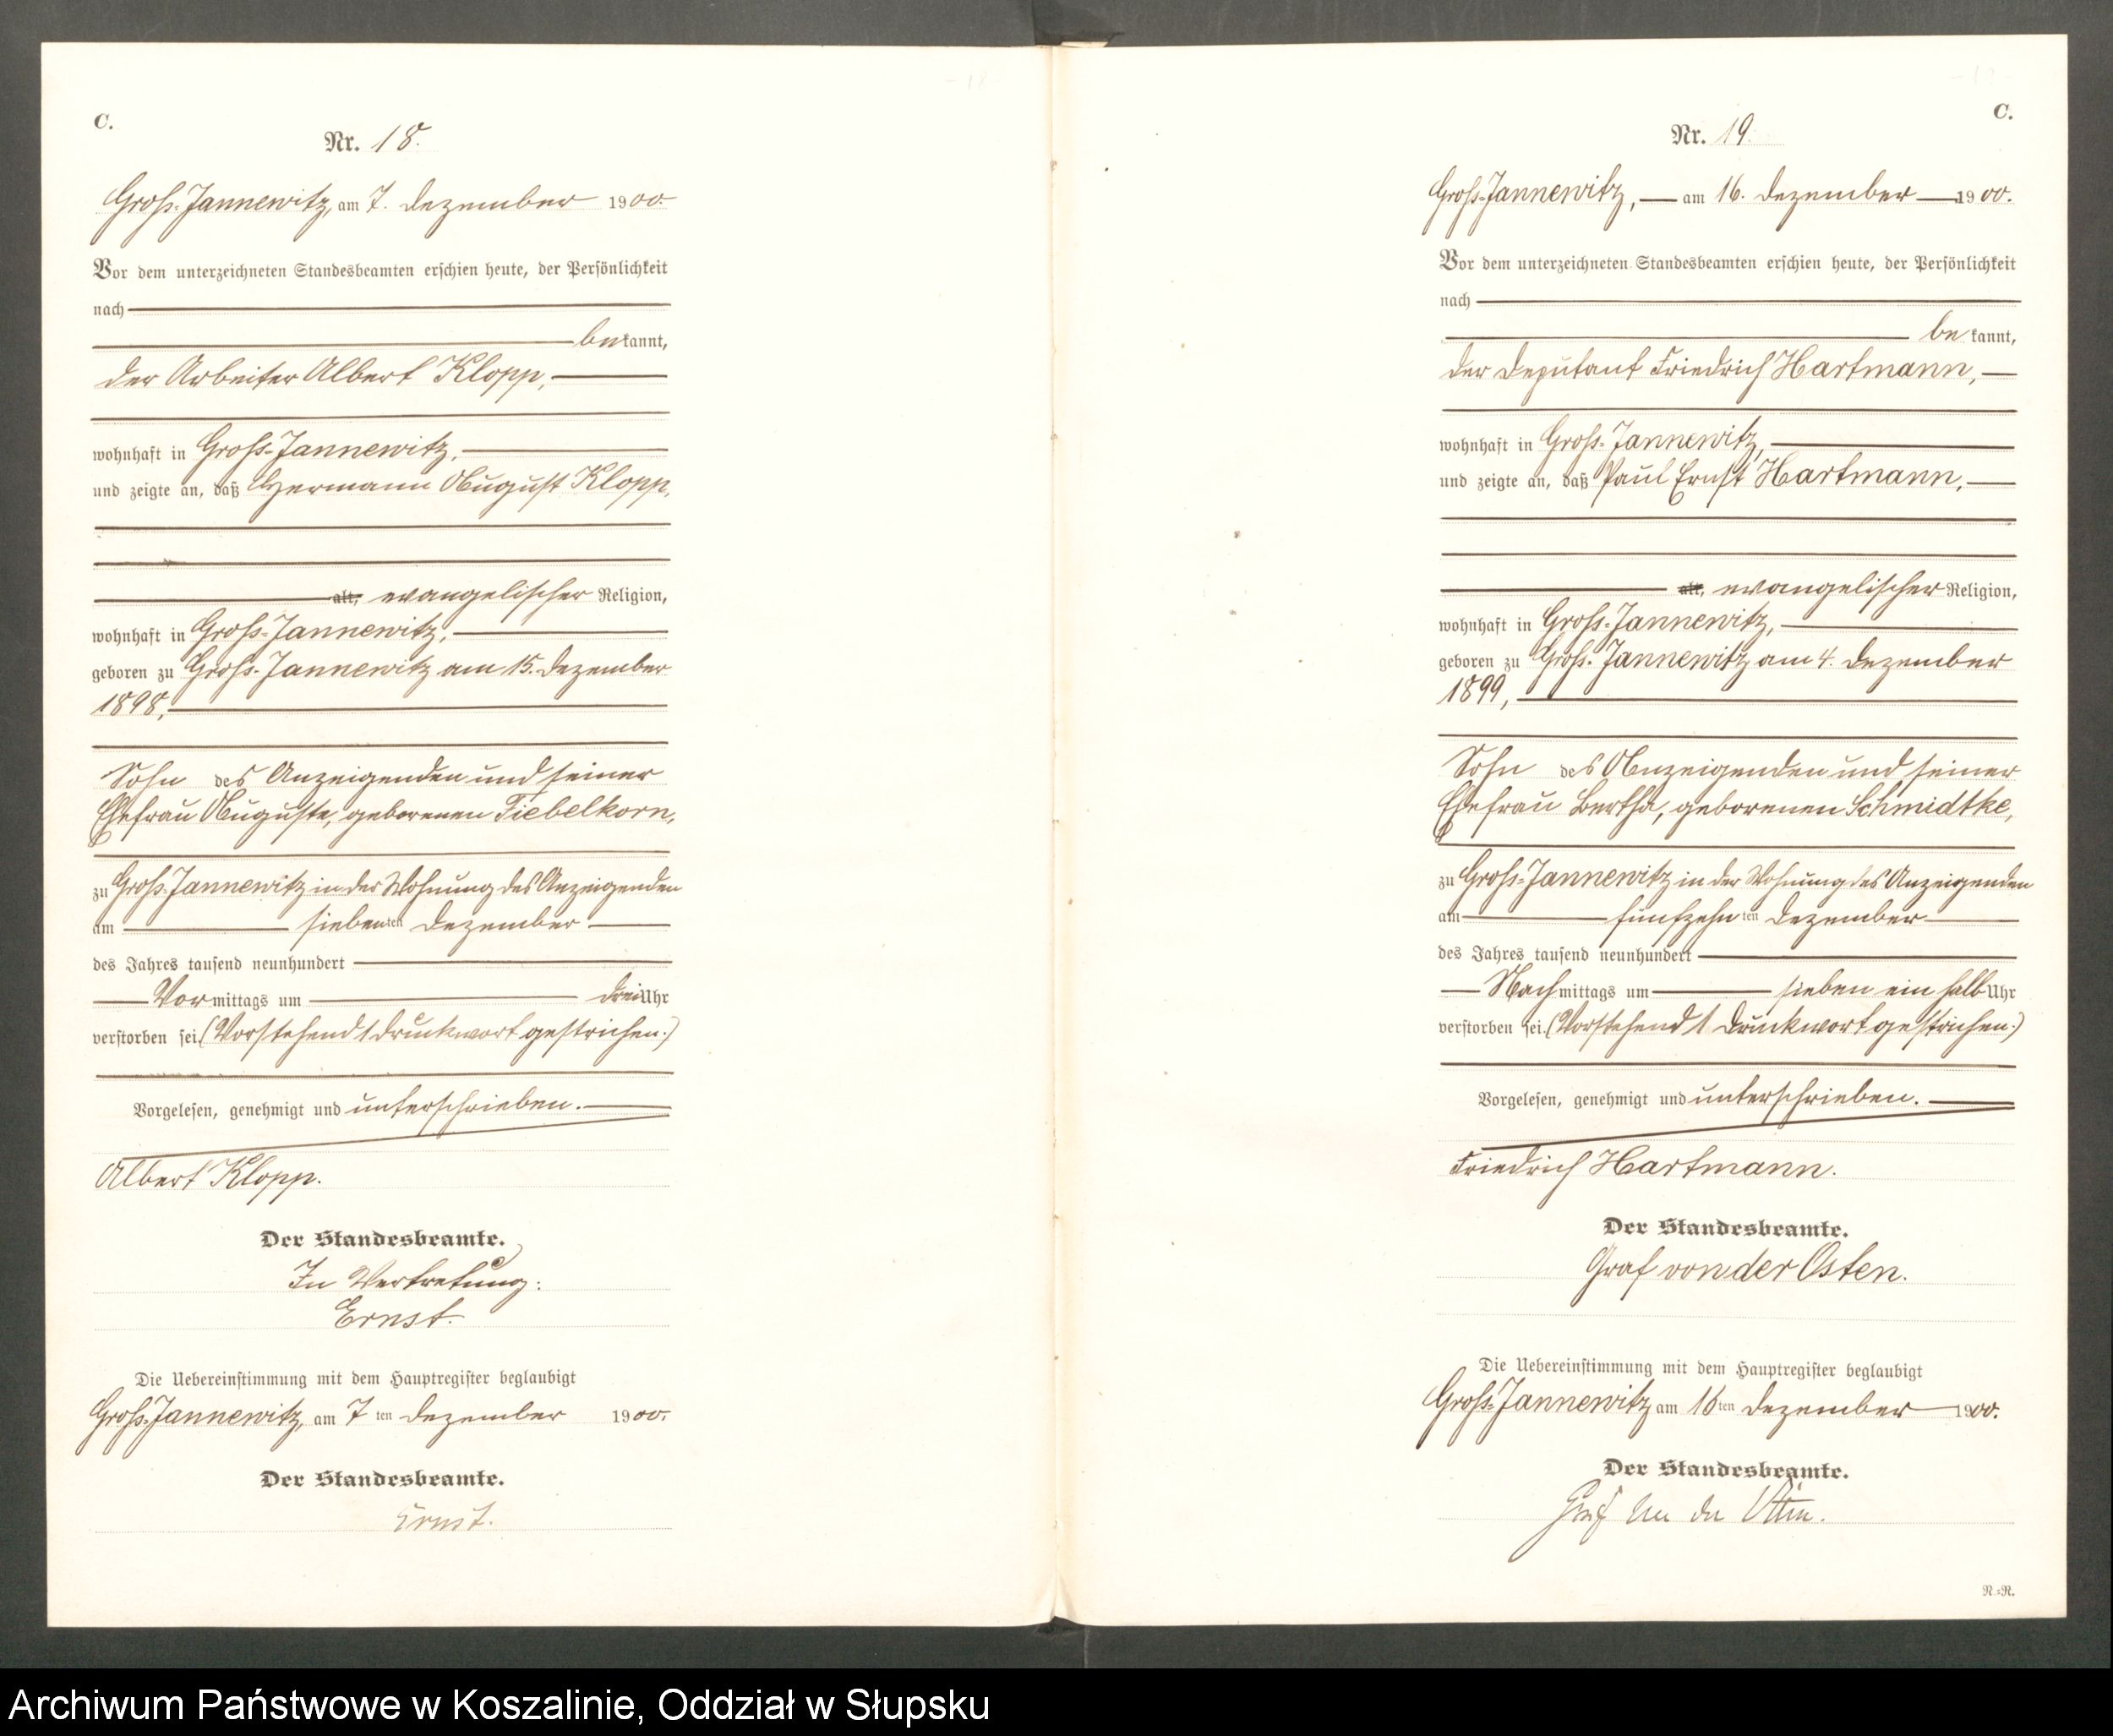 C.
Nr. 18.
Groß-Jannewitz, am 7. Dezember 1900
Vor dem unterzeichneten Standesbeamten erschien heute, der Persönlichkeit
nach
bekannt,
der Arbeiter Albert Klopp,
wohnhaft in Groß-Jannewitz,
und zeigte an, daß Hermann August Klopp,
alt, evangelischer Religion,
wohnhaft in Groß-Jannewitz,
geboren zu Groß-Jannewitz am 15. Dezember
1898,
Sohn des Anzeigenden und seiner
Ehefrau Auguste, geborenen Fiebelkorn,
zu Groß-Jannewitz in der Wohnung des Anzeigenden
am siebenten Dezember
des Jahres tausend neunhundert
Vormittags um drei Uhr
verstorben sei. (Vorstehend 1 Druckwort gestrichen.)
Vorgelesen, genehmigt und unterschrieben.
Albert Klopp.
Der Standesbeamte.
In Vertretung:
Ernst.
Die Uebereinstimmung mit dem Hauptregister beglaubigt
Groß-Jannewitz, am 7ten Dezember 1900.
Der Standesbeamte.
Ernst.
C.
Nr. 19.
Groß-Jannewitz, am 16. Dezember 1900.
Vor dem unterzeichneten Standesbeamten erschien heute, der Persönlichkeit
nach
bekannt,
der Deputant Friedrich Hartmann,
wohnhaft in Groß-Jannewitz,
und zeigte an, daß Paul Ernst Hartmann,
alt, evangelischer Religion,
wohnhaft in Groß-Jannewitz,
geboren zu Groß-Jannewitz am 4. Dezember
1899,
Sohn des Anzeigenden und seiner
Ehefrau Bertha, geborenen Schmidtke,
zu Groß-Jannewitz in der Wohnung des Anzeigenden
am fünfzehnten Dezember
des Jahres tausend neunhundert
Nachmittags um sieben ein halb Uhr
verstorben sei. (Vorstehend 1 Druckwort gestrichen.)
Vorgelesen, genehmigt und unterschrieben.
Friedrich Hartmann.
Der Standesbeamte.
Graf von der Osten.
Die Uebereinstimmung mit dem Hauptregister beglaubigt
Groß-Jannewitz am 16ten Dezember 1900.
Der Standesbeamte.
Graf von der Osten.
N.=N.
Archiwum Państwowe w Koszalinie, Oddział w Słupsku